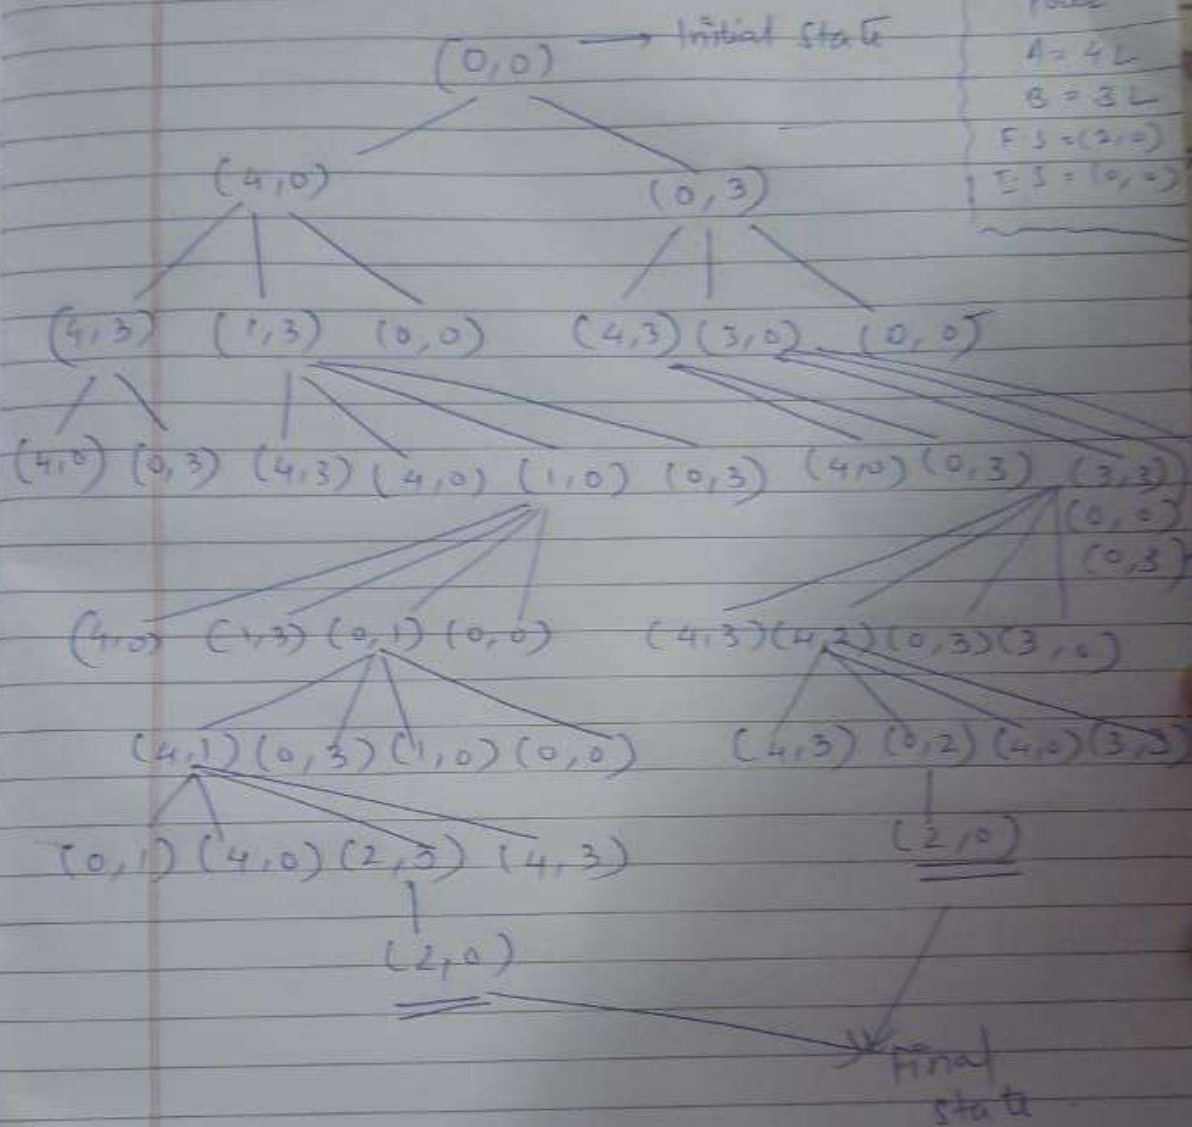 (0,0) → Initial state
A = 4 L
B = 3 L
F.S = (2,0)
I.S = (0,0)
(4,0) (0,3)
(4,3) (1,3) (0,0) (4,3) (3,0) (0,0)
(4,0) (0,3) (4,3) (4,0) (1,0) (0,3) (4,0) (0,3) (3,3)
(0,0)
(0,3)
(4,0) (1,3) (0,1) (0,0) (4,3) (4,2) (0,3) (3,0)
(4,1) (0,3) (1,0) (0,0) (4,3) (0,2) (4,0) (3,3)
(0,1) (4,0) (2,3) (4,3) (2,0)
(2,0)
Final
state